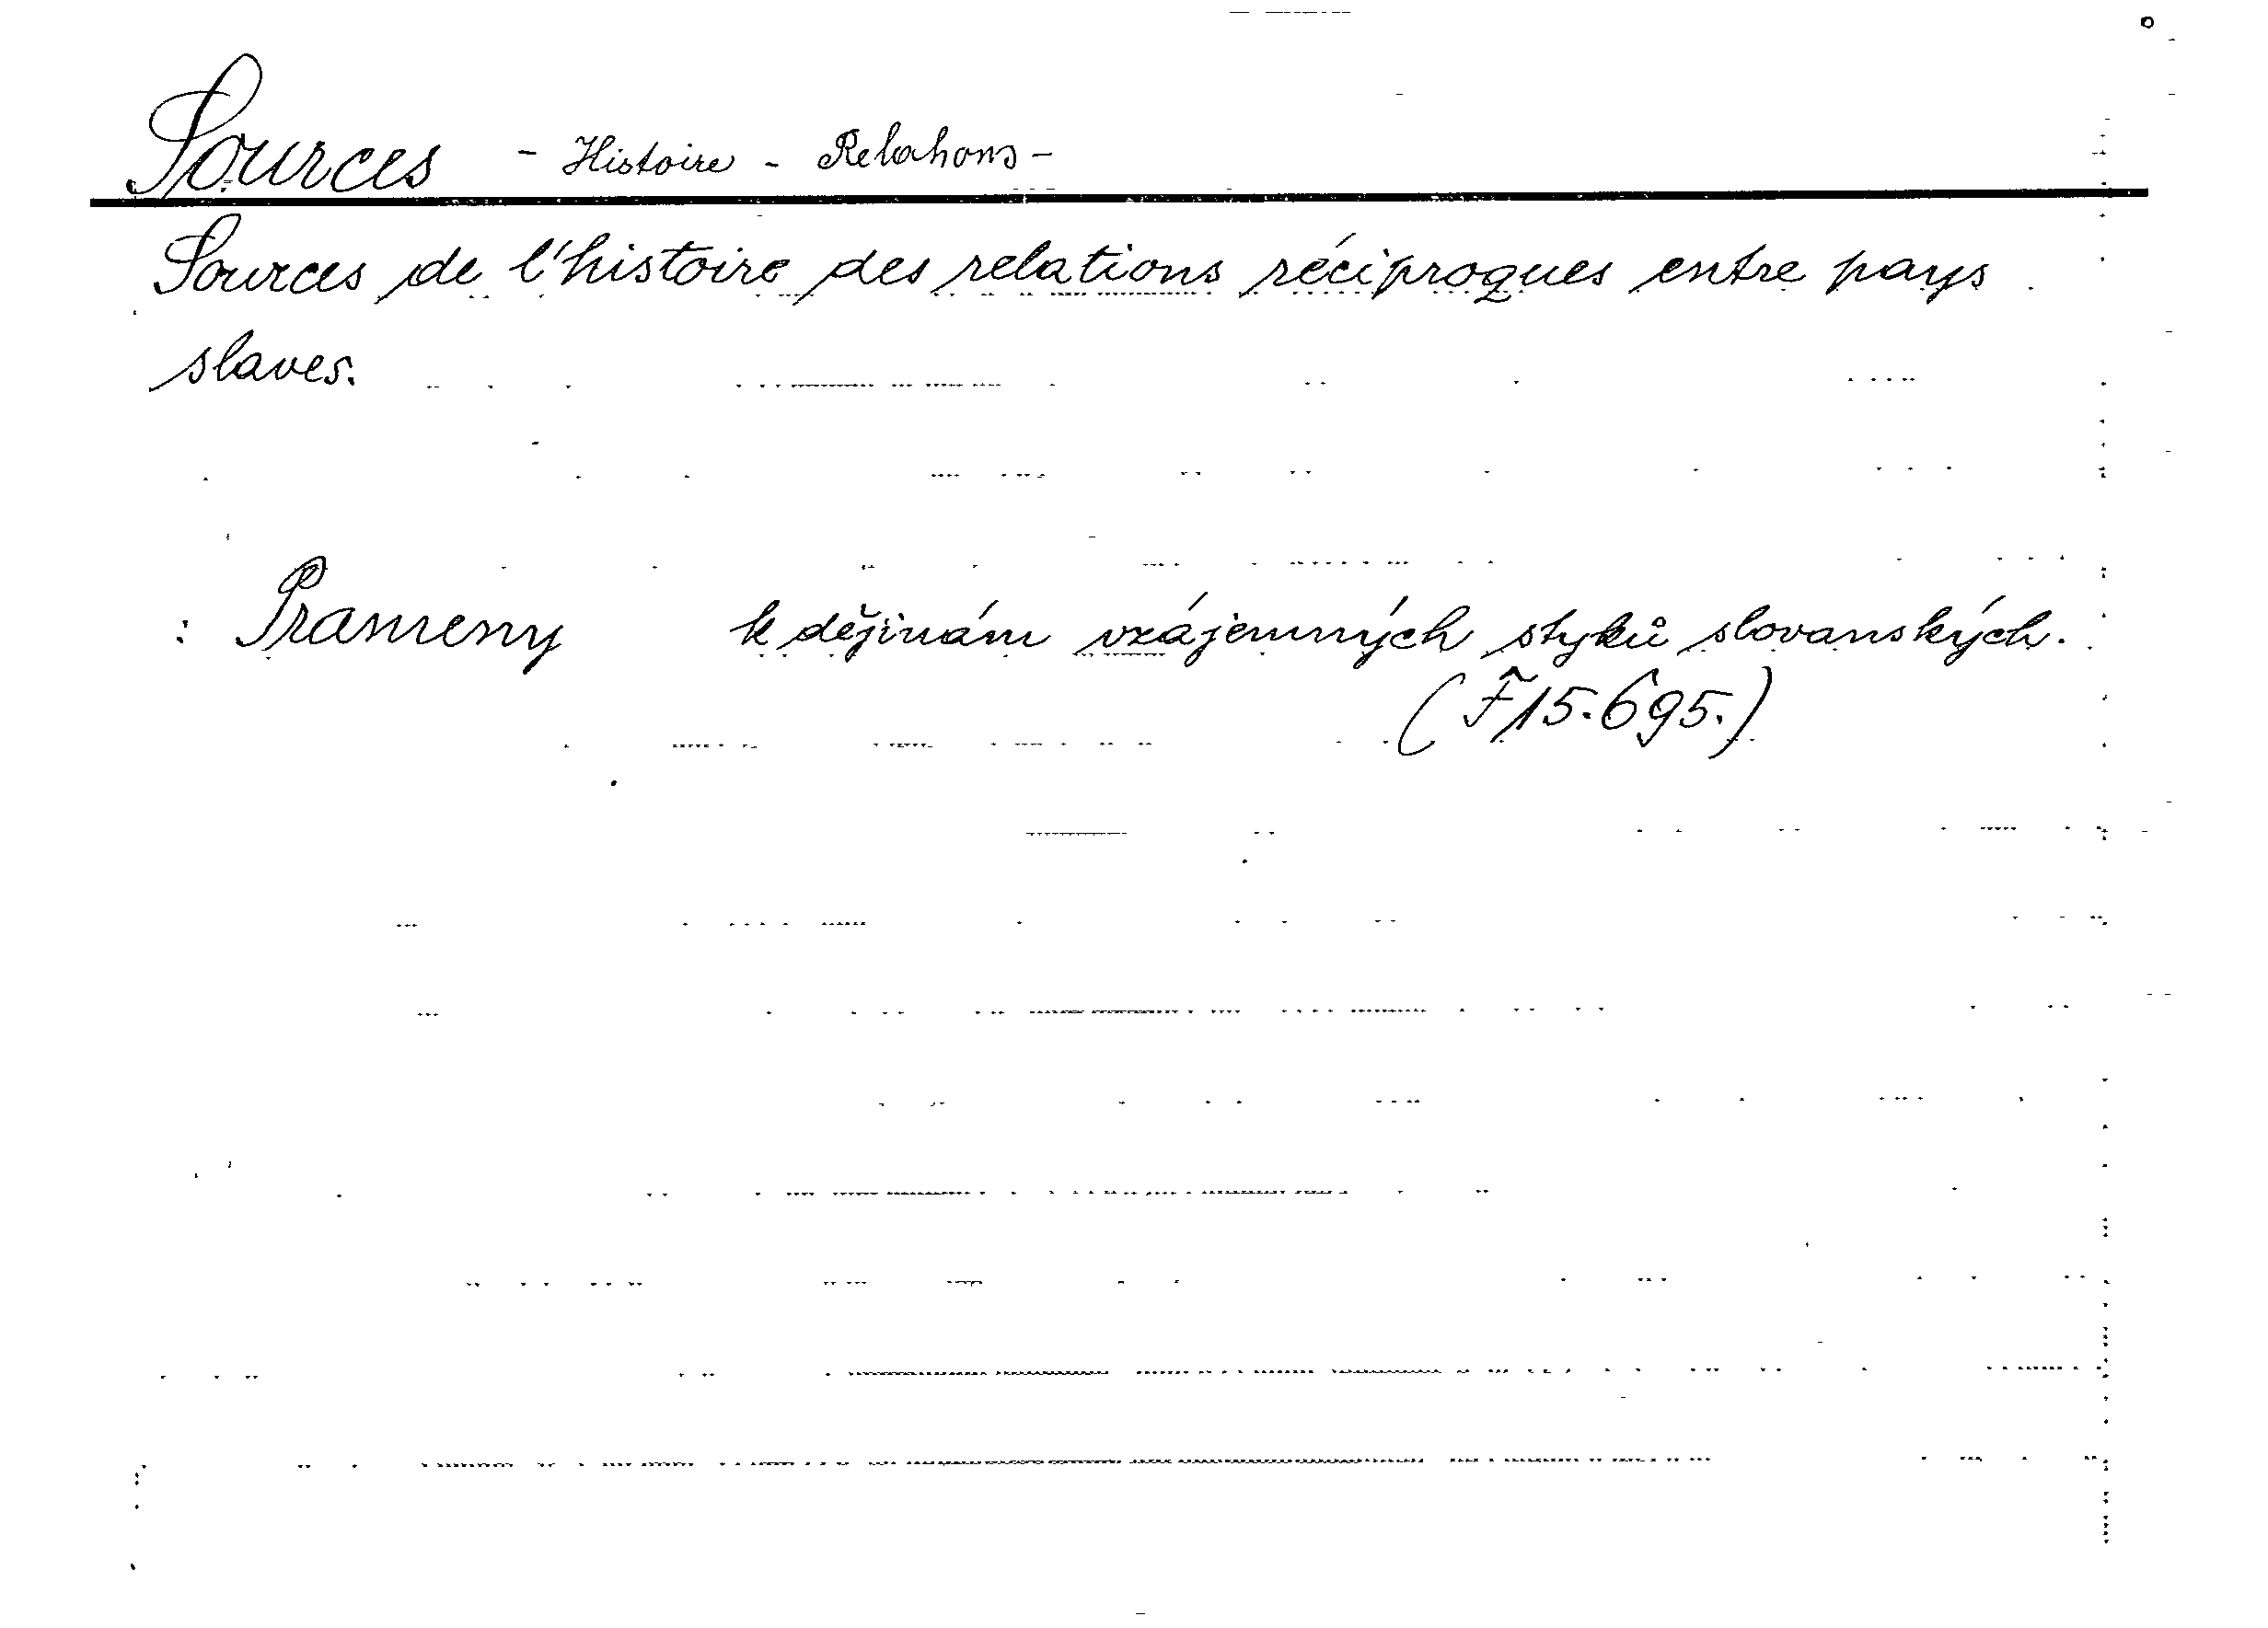 Sources - Histoire - Relations -
Sources de l'histoire des relations réciproques entre pays
slaves.
: Prameny k dějinám vzájemných styků slovanských.
(F 15.695.)